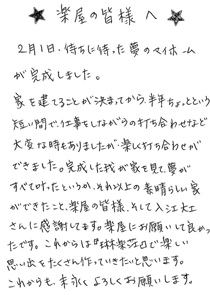 ★ 楽屋の皆様へ ★
2月1日、待ちに待った夢のマイホーム
が完成しました。
家を建てることが決まってから、半年ちょっとという
短い間で、仕事をしながらの打ち合わせなど
大変な時もありましたが、楽しく打ち合わせが
できました。完成した我が家を見て、夢が
すべて叶ったというか、それ以上の素晴らしい家
ができたこと、楽屋の皆様、そして入江大工
さんに感謝してます。楽屋にお願いして良かっ
たです。これからは 楽しい
思い出をたくさん作っていきたいと思います。
これからも、末永くよろしくお願いします。